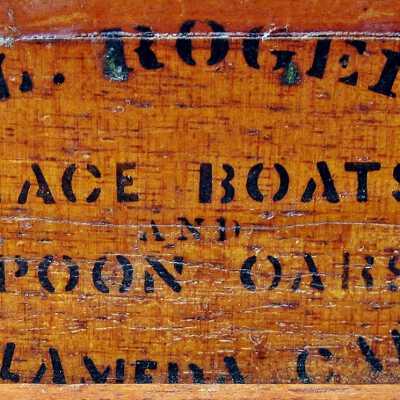 L. ROGER
ACE BOATS
AND
POON OARS
LAMEDA CAL